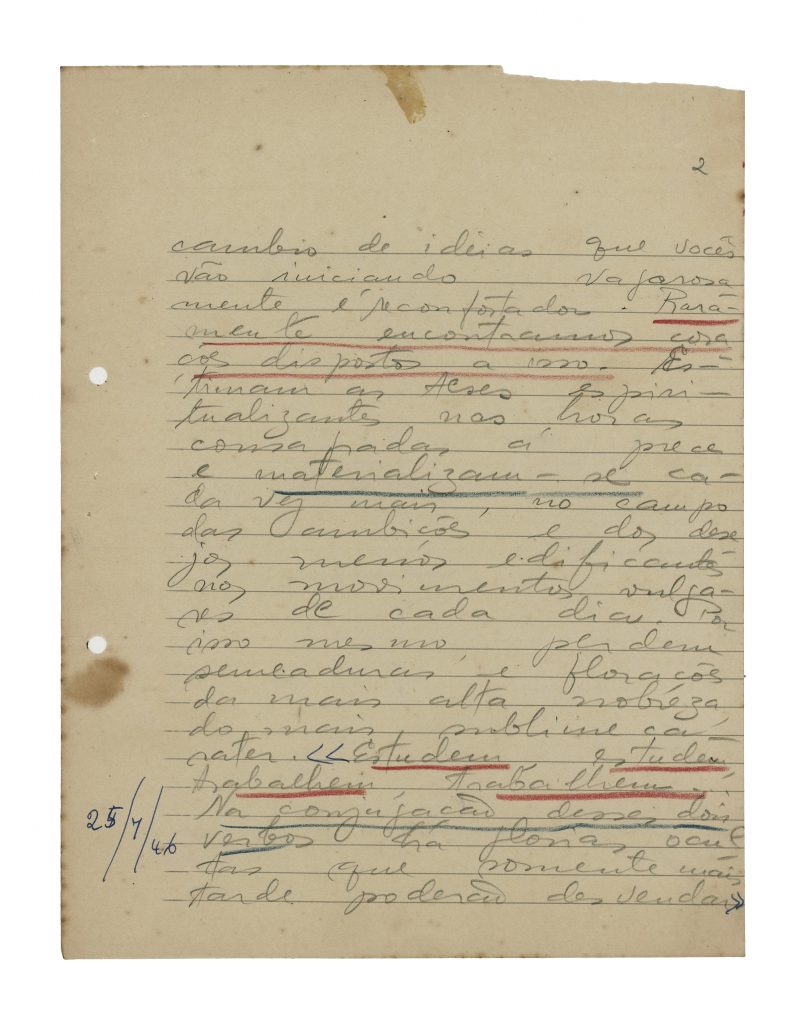 2
cambio de idéias que vocês
vão iniciando vagarosa
mente é reconfortador. Rara-
mente encontramos cora
ções dispostos a isso. Es-
timam as teses espiri-
tualizantes nas horas
consagradas á prece
e materializam-se ca-
da vez mais, no campo
das ambições e dos dese
jos menos edificantes
nos movimentos vulga-
res de cada dia. Por
isso mesmo, perdem
semeaduras e florações
da mais alta nobreza
do mais sublime ca-
rater. <<Estudem, estudem,
trabalhem, trabalhem.
Na conjugação desses dois
verbos há glórias ocul
tas que somente mais
tarde poderão desvendar>>
25/7/46